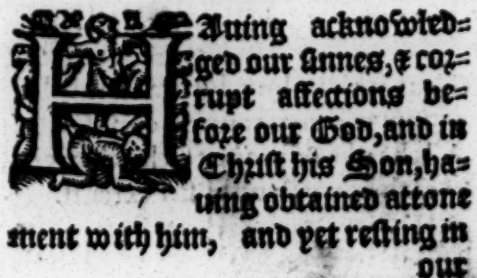 HAuing acknowled=
ged our sinnes, & cor=
rupt affections be=
fore our God, and in
Christ his Son, ha=
uing obtained attone
ment with him, and yet resting in
our